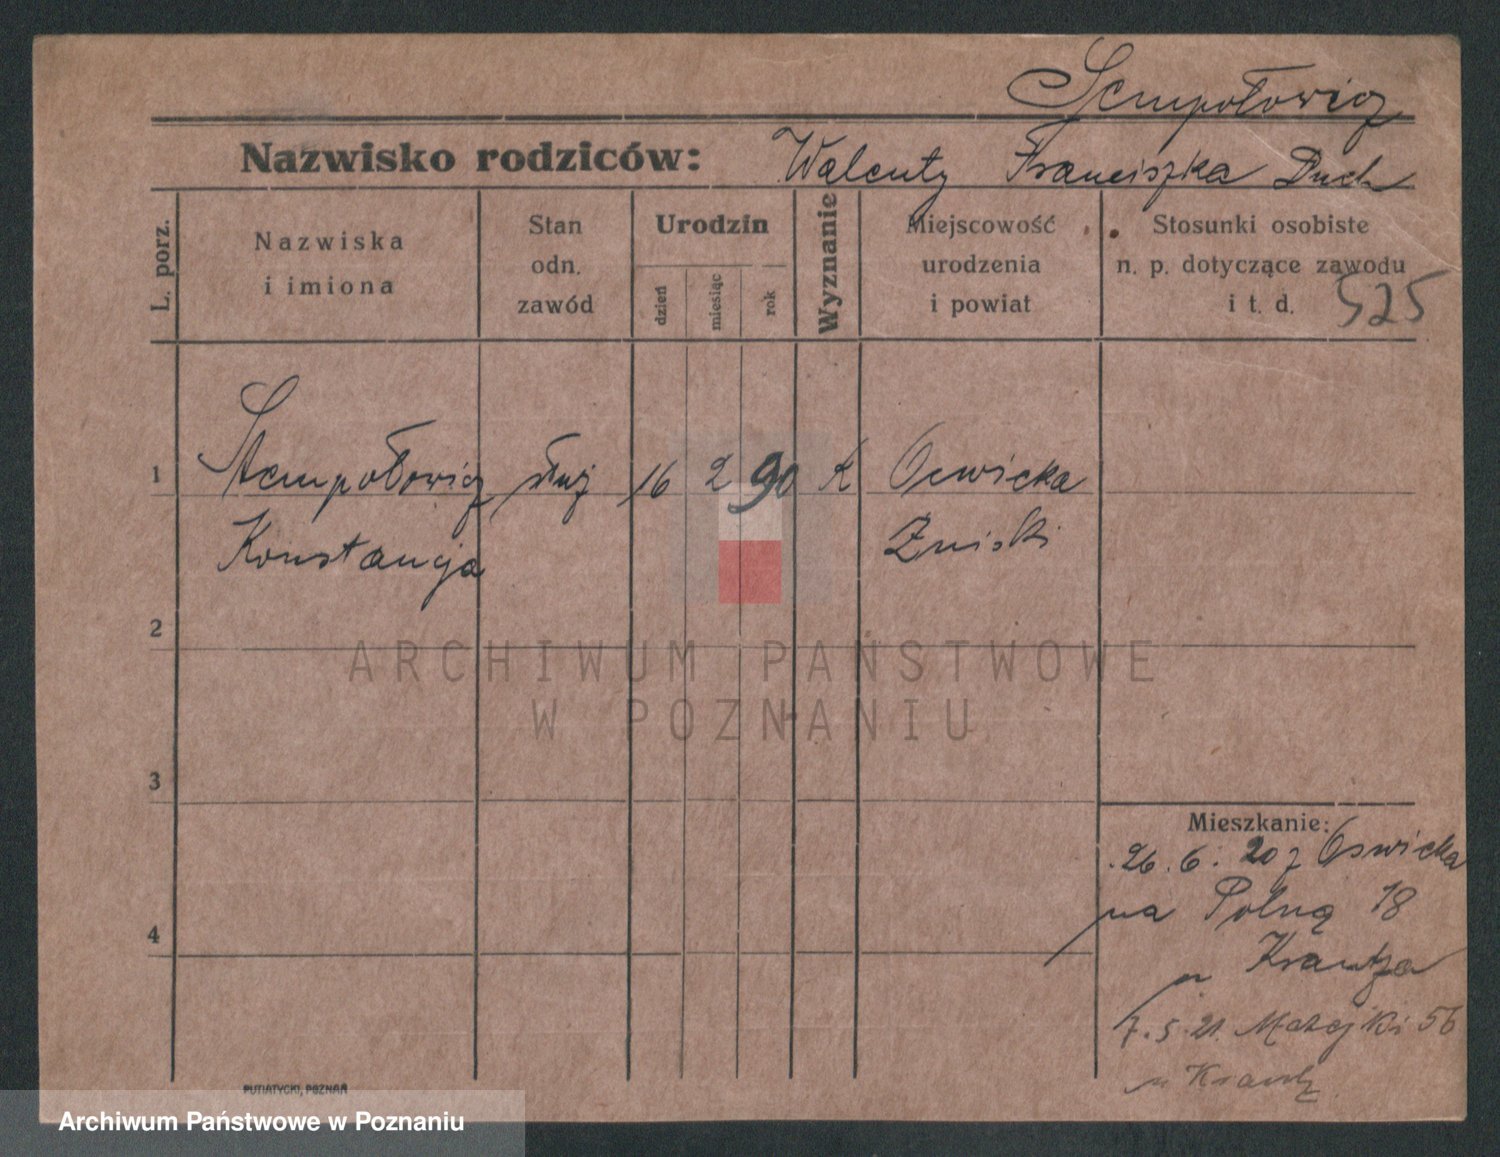 Sempołowicz
Nazwisko rodziców: Walenty Franciszka Duch
L. porz.
Nazwiska
i imiona
Stan
odn.
zawód
Urodzin
dzień
miesiąc
rok
Wyznanie
Miejscowość
urodzenia
i powiat
Stosunki osobiste
n. p. dotyczące zawodu
i t. d.
525
1 Stempołowicz służ 16 2 90 K Ocwieka
Konstancja Żniński
2
3
4
Mieszkanie:
26.6.20 z Oswieka
na Polną 18
u Krantza
7.5.21. Matejki 56
u Krantz
PUTIATYCKI, POZNAŃ
ARCHIWUM PAŃSTWOWE
W POZNANIU
Archiwum Państwowe w Poznaniu